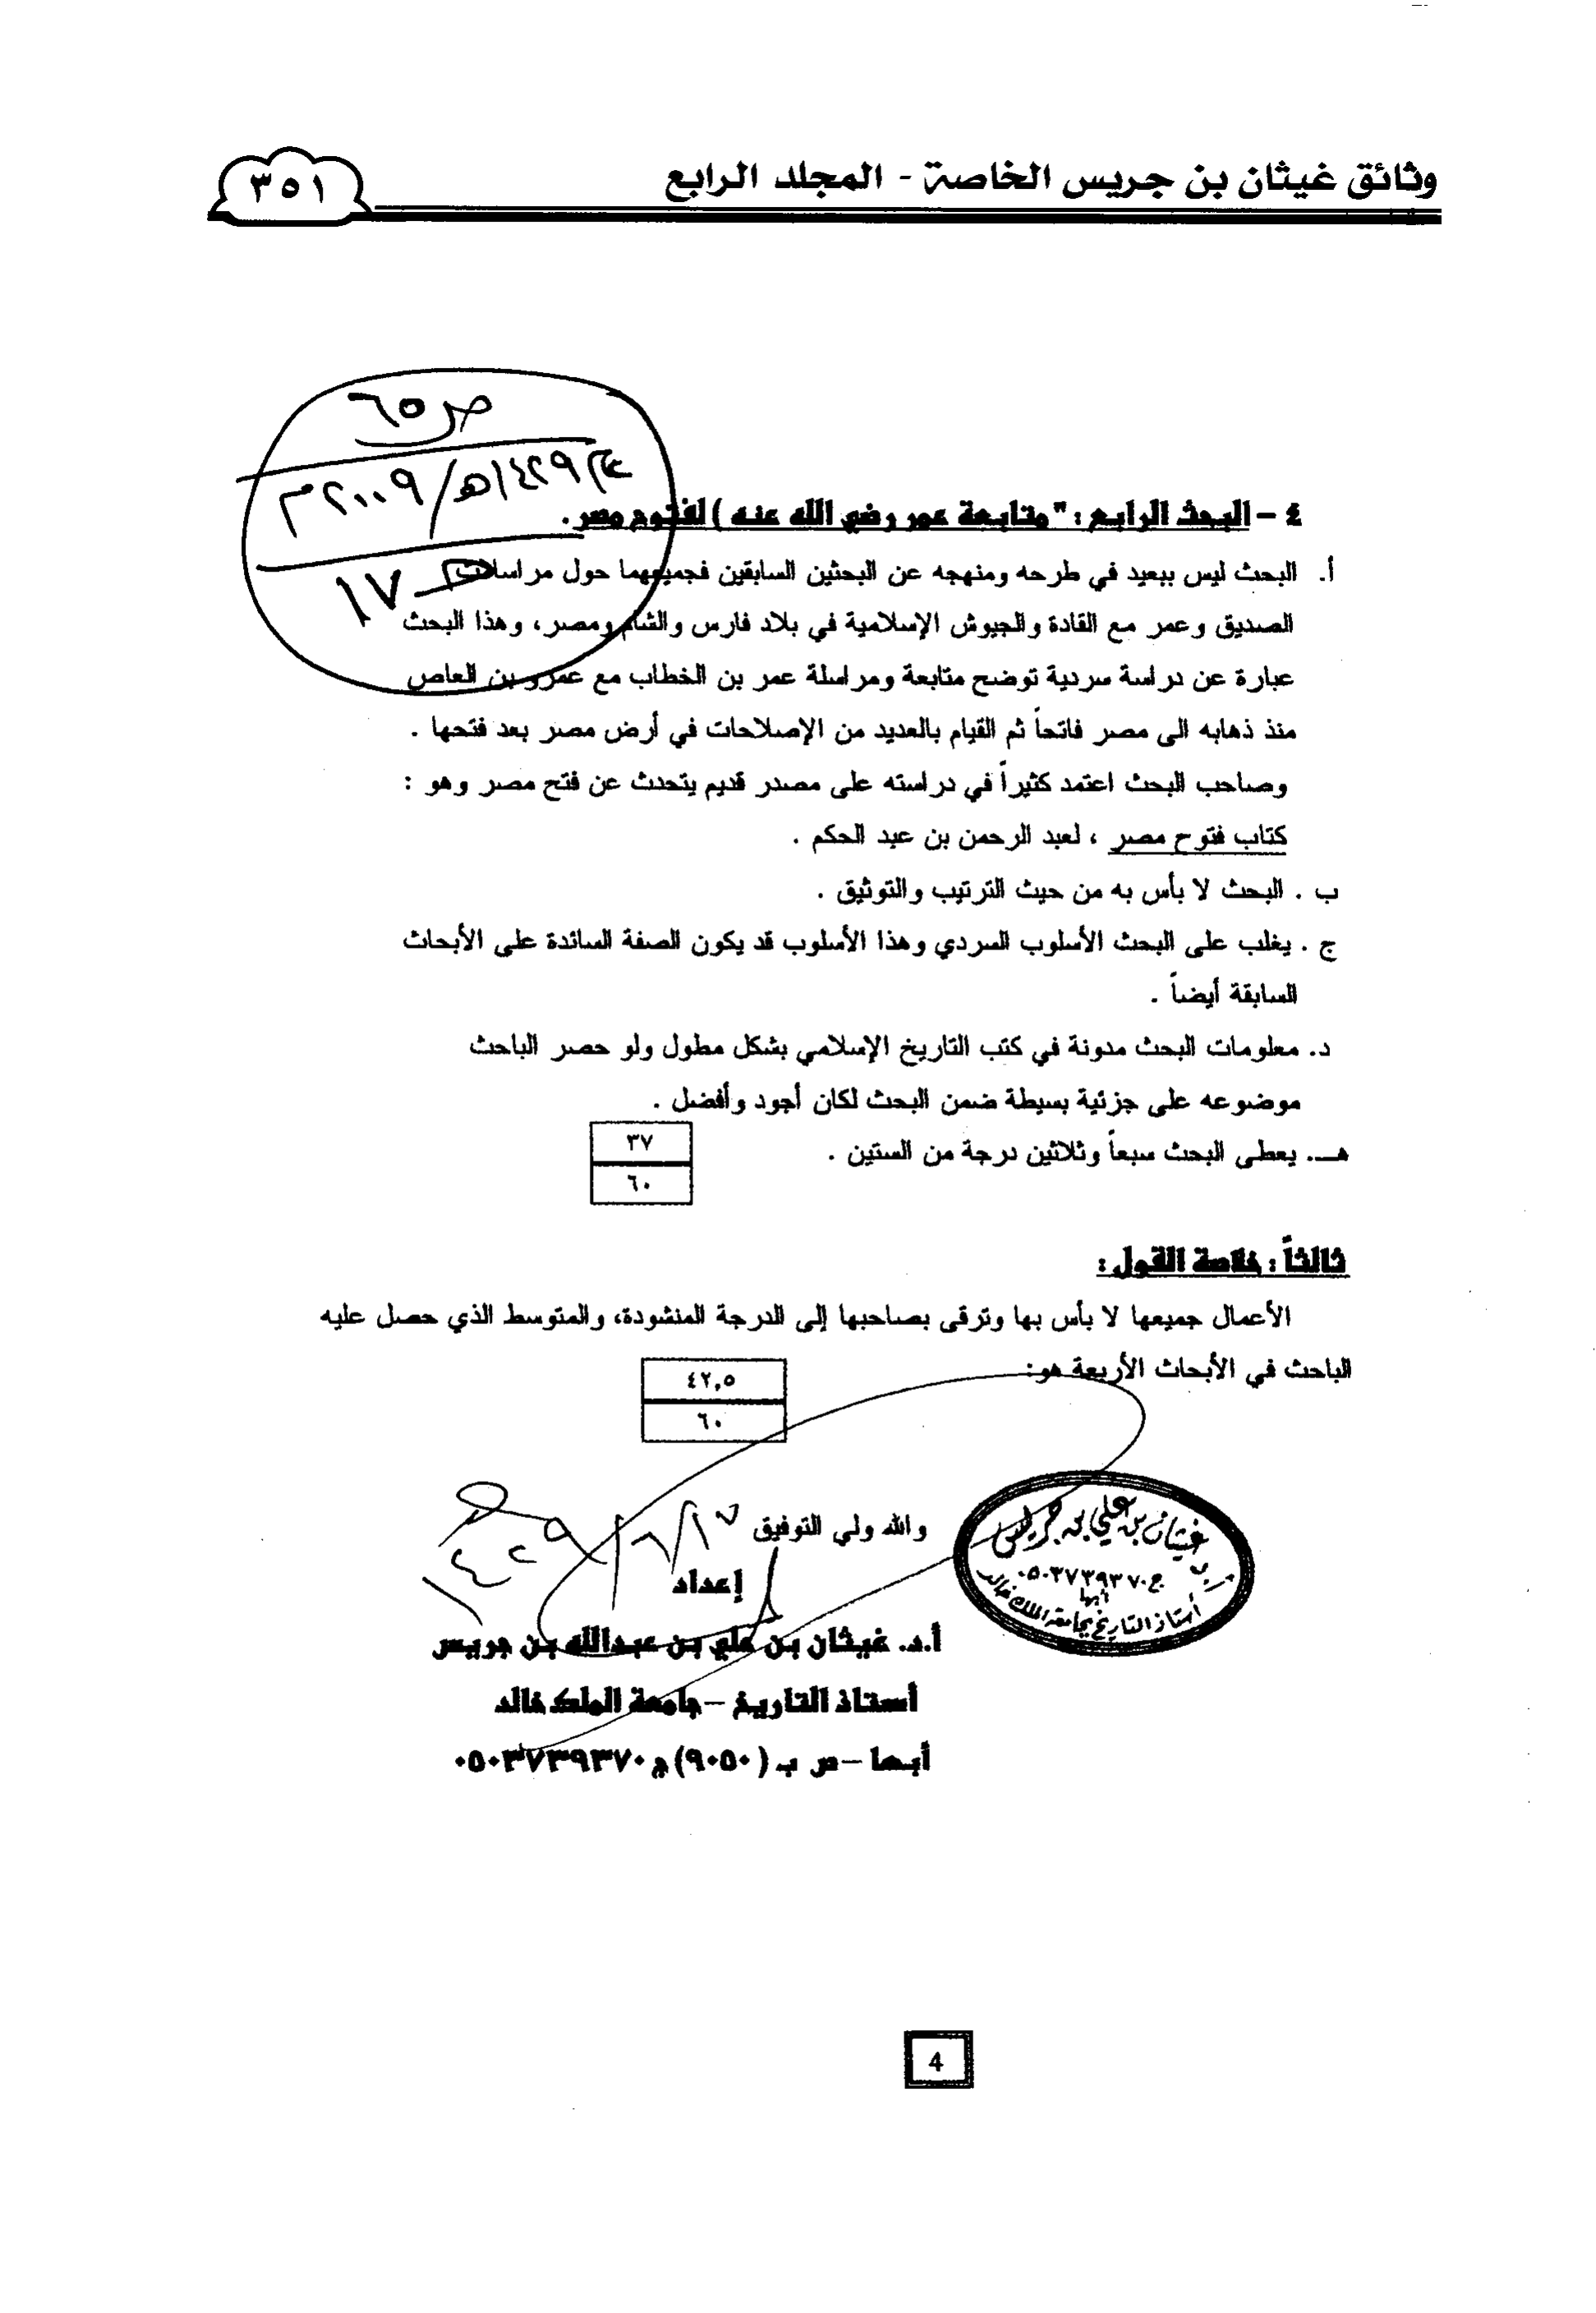 وثائق غيثان بن جريس الخاصة - المجلد الرابع
٣٥١
ص ٦٥
١٤٢٩هـ/٢٠٠٩م
١٧
٤ – البحث الرابع : " متابعة عمر رضي الله عنه ) لفتوح مصر .
أ. البحث ليس ببعيد في طرحه ومنهجه عن البحثين السابقين فجميعهما حول مراسلات
الصديق وعمر مع القادة والجيوش الإسلامية في بلاد فارس والشام ومصر، وهذا البحث
عبارة عن دراسة سردية توضح متابعة ومراسلة عمر بن الخطاب مع عمرو بن العاص
منذ ذهابه الى مصر فاتحاً ثم القيام بالعديد من الإصلاحات في أرض مصر بعد فتحها .
وصاحب البحث اعتمد كثيراً في دراسته على مصدر قديم يتحدث عن فتح مصر وهو :
كتاب فتوح مصر ، لعبد الرحمن بن عبد الحكم .
ب . البحث لا بأس به من حيث الترتيب والتوثيق .
ج . يغلب على البحث الأسلوب السردي وهذا الأسلوب قد يكون الصفة السائدة على الأبحاث
السابقة أيضاً .
د. معلومات البحث مدونة في كتب التاريخ الإسلامي بشكل مطول ولو حصر الباحث
موضوعه على جزئية بسيطة ضمن البحث لكان أجود وأفضل .
هـ. يعطى البحث سبعاً وثلاثين درجة من الستين .
٣٧
٦٠
ثالثاً : خلاصة القول :
الأعمال جميعها لا بأس بها وترقى بصاحبها إلى الدرجة المنشودة، والمتوسط الذي حصل عليه
الباحث في الأبحاث الأربعة هو:
٤٢,٥
٦٠
والله ولي التوفيق
إعداد
أ.د. غيثان بن علي بن عبدالله بن جريس
أستاذ التاريخ – جامعة الملك خالد
أبها – ص ب ( ٩٠٥٠) ج ٠٥٠٣٧٣٩٣٧٠
غيثان بن علي بن جريس
ج ٠٥٠٣٧٣٩٣٧٠
أبها
أستاذ التاريخ بجامعة الملك خالد
4